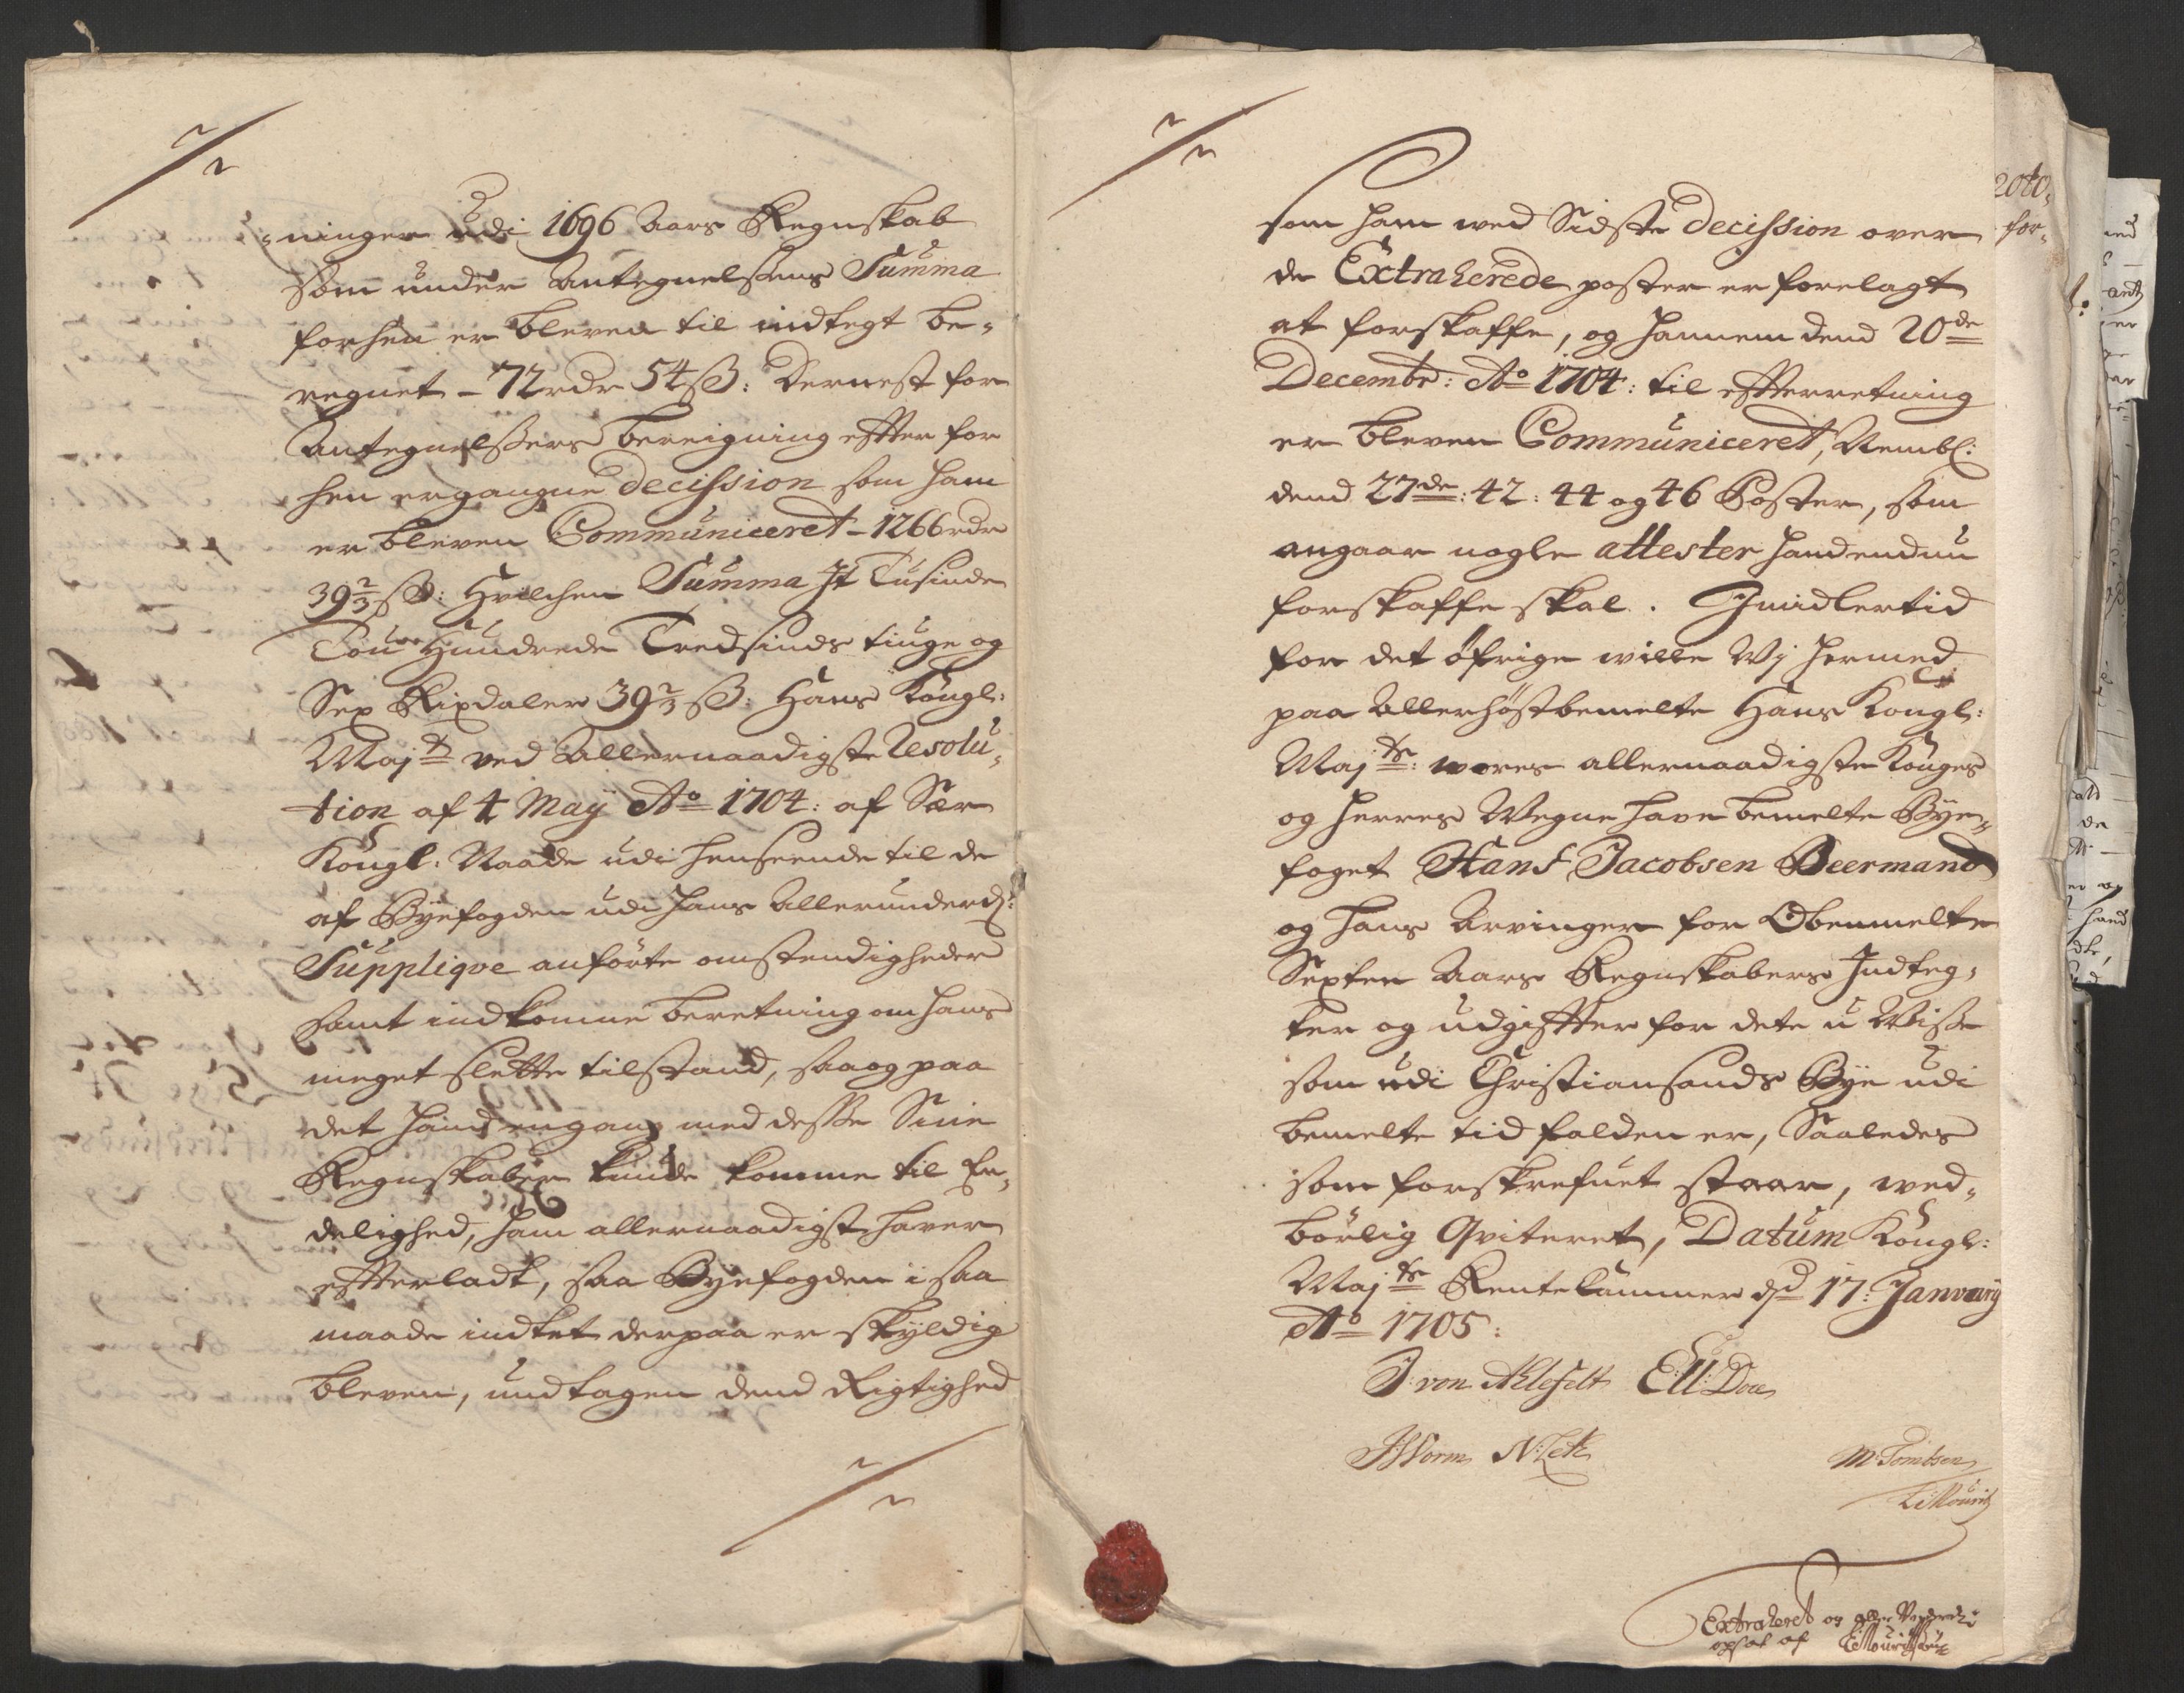 ninger udi 1696 Aars Regnskab
som under Antegnelsens Summa
forhen er bleven til indtegt be-
regnet - 72 rdr 54 ß: Dernest for
Antegnelssers bereigning effter for
hen ergangne Decission som ham
er bleven Communiceret - 1266 rdr
39 2/3 ß: Hvilchen Summa It Tusinde
Tou Hundrede Tredsinds tiuge og
Sex Rixdaler 39 2/3 ß: Hans Kongl:
Majt ved Allernaadigste Resolu-
tion af 4 Maÿ Ao 1704: af Sær
Kongl: Naade udi henseende til de
af Byefogden udi hans Allerunderd:
Suppliqve anførte omstendigheder
samt indkomne beretning om hans
meget slette tilstand, saa og paa
det hand engang med desse Sine
Regnskaber kunde komme til En-
delighed, ham allernaadigst haver
effterladt, saa Byefogden i saa
maade indtet derpaa er skyldig
bleven, undtagen dend Rigtighed
som ham wed Sidste Decission over
de Extraherede poster er forelagt
at forskaffe, og hannem dend 20de
Decembr: Ao 1704: til effterretning
er bleven Communiceret, Nembl:
dend 27de: 42: 44 og 46 Poster, som
angaar nogle attester hand endnu
forskaffe skal. Imidlertid
for det øfrige wille Wj hermed
paa Allerhøstbemelte Hans Kongl:
Majts: wores allernaadigste Konges
og Herres Wegne have bemelte Bye-
foget Hans Jacobsen Beermand
og hans Arvinger for Obenmelte
Sexten Aars Regnskabers Indteg-
ter og udgiffter for dete u Wisse
som udi Christiansands Bye udi
bemelte tid falden er, Saaledes
som forskrefuet staar, wed-
børlig Qviteret, Datum Kongl:
Majts Rentekammer dd 17: Janvarij
Ao 1705:
J: von Ahlefelt
JWorm
M Tombsen
Extraheret og
opsat af